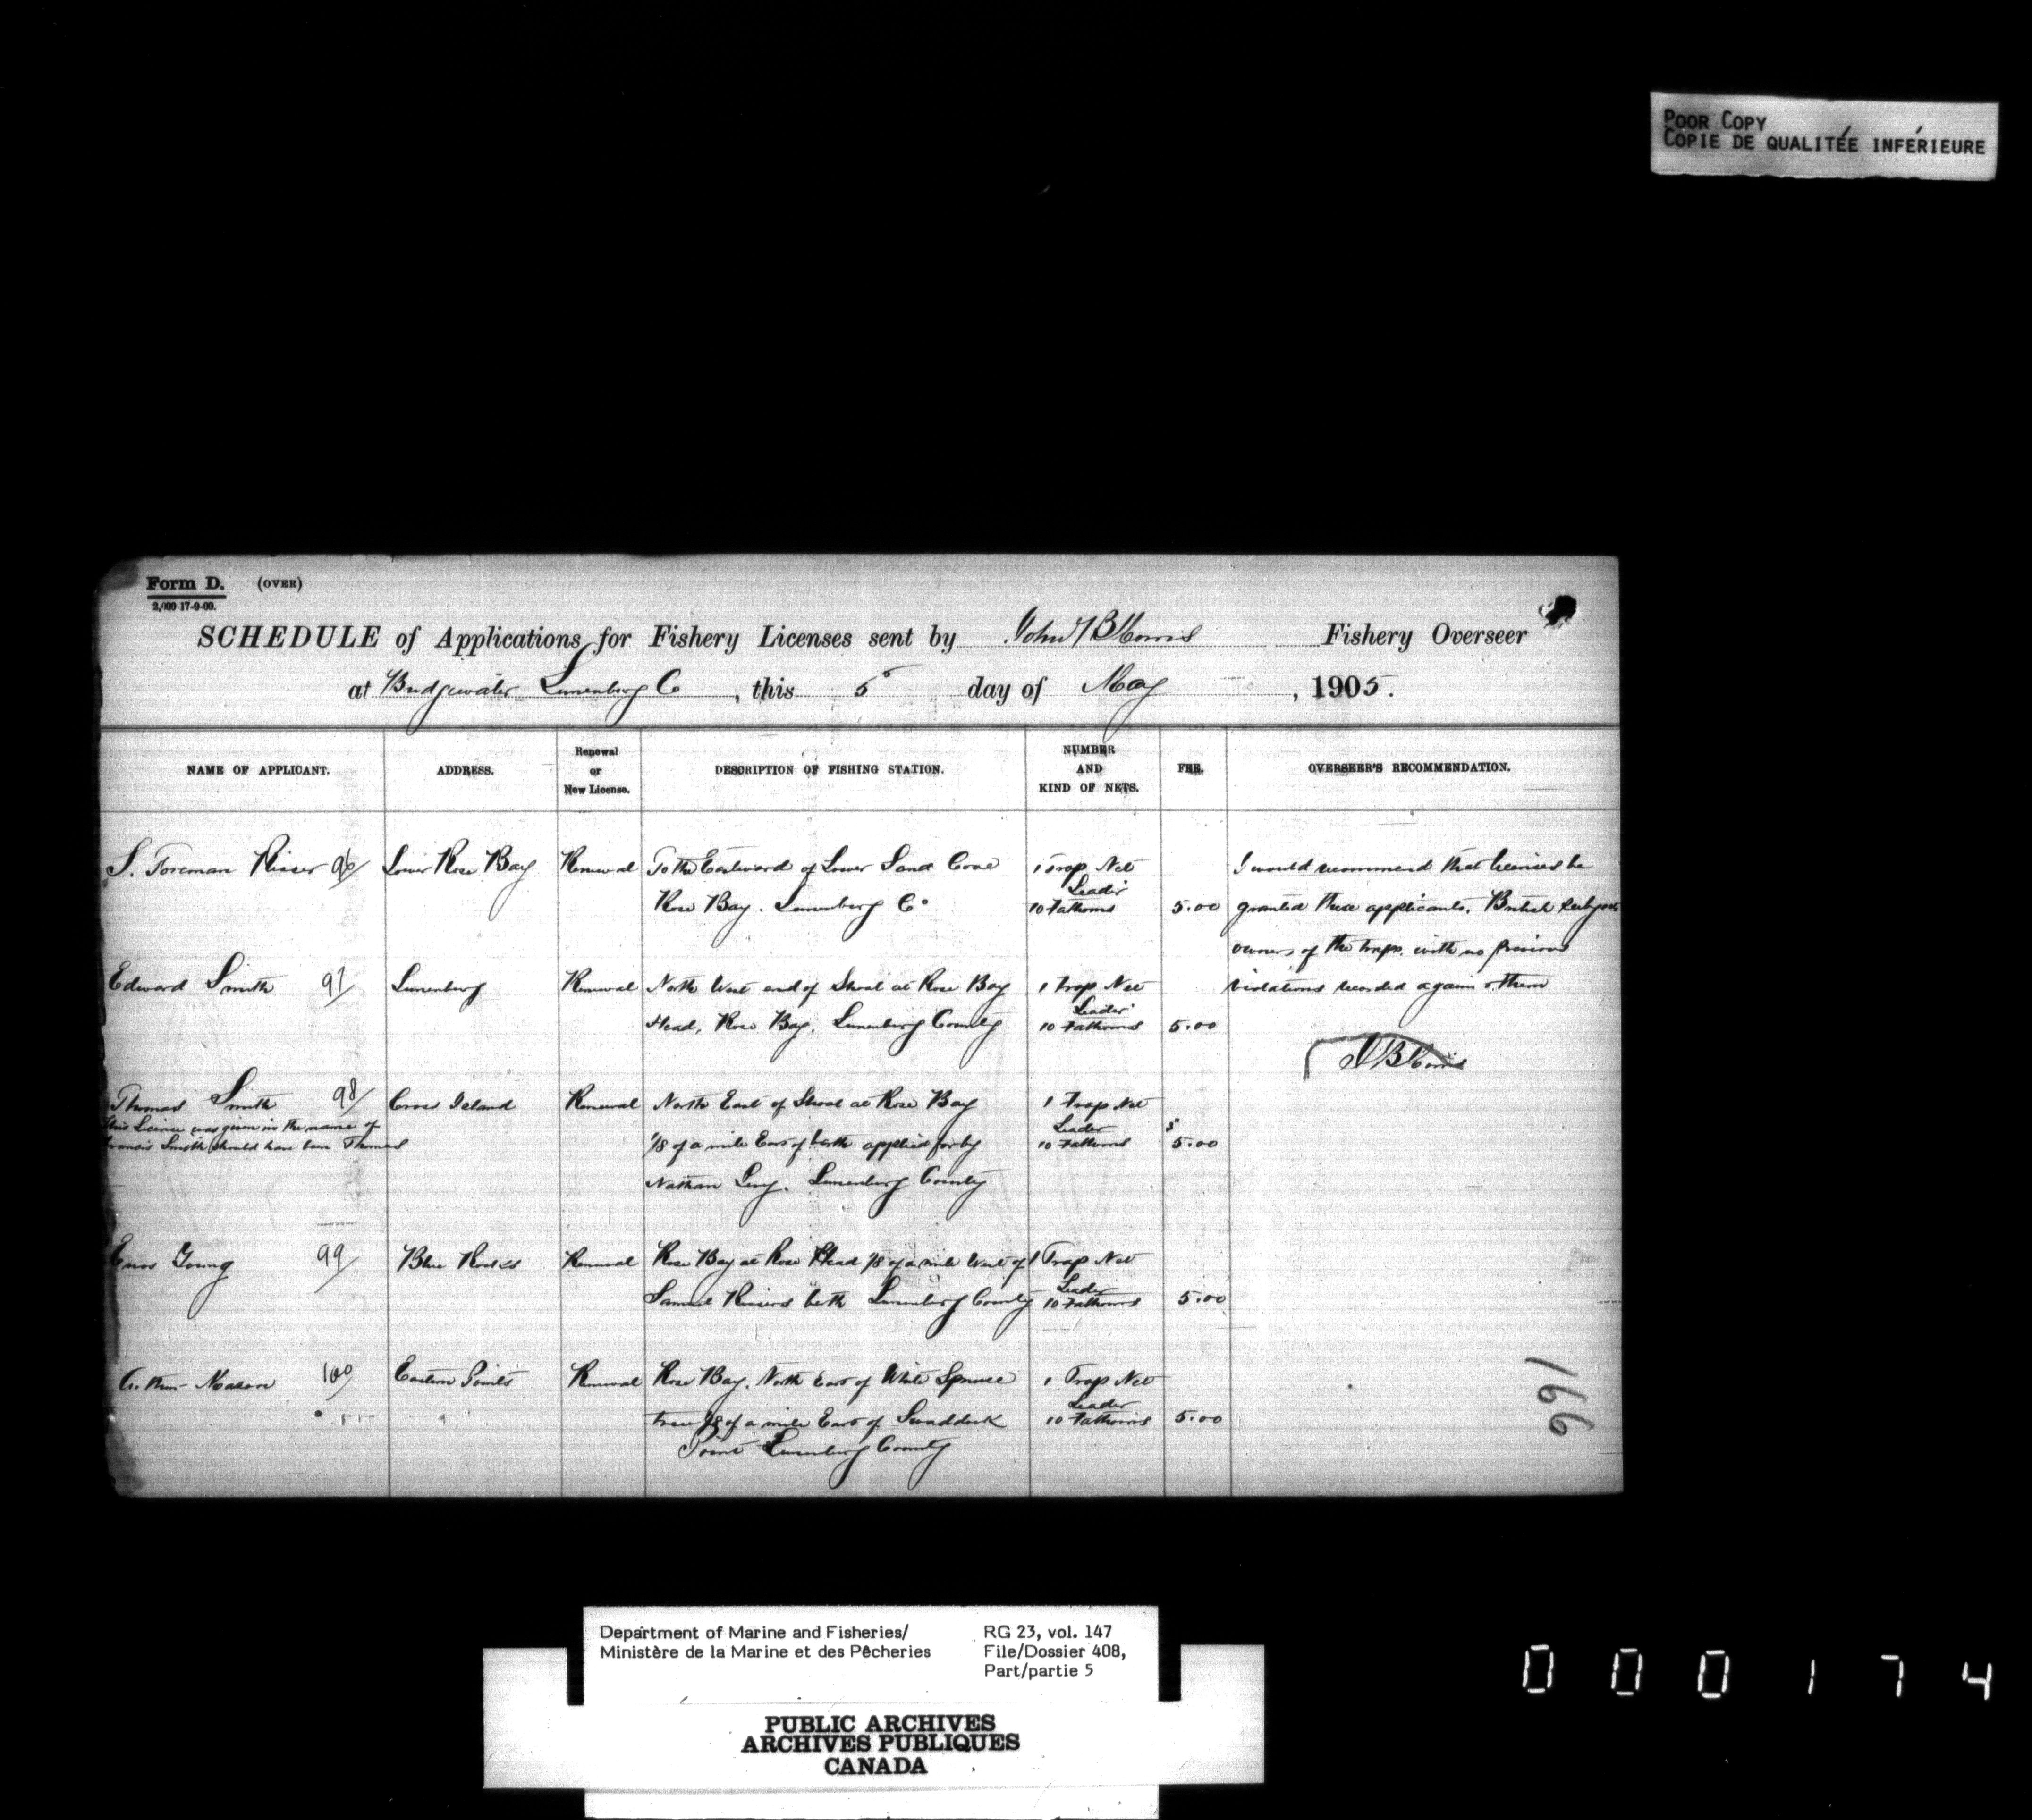 POOR COPY
COPIE DE QUALITÉE INFÉRIEURE
Form D. (OVER)
2,000-17-9-00.
SCHEDULE of Applications for Fishery Licenses sent by John B Morris Fishery Overseer
at Bridgewater Lunenburg Co, this 5 day of May, 1905.
NAME OF APPLICANT. ADDRESS. Renewal or New License. DESCRIPTION OF FISHING STATION. NUMBER AND KIND OF NETS. FEE. OVERSEER'S RECOMMENDATION.
S. Foreman Risser 96/ Lower Rose Bay Renewal To the Eastward of Lower Sand Cove 1 Trap Net I would recommend that licenses be
Rose Bay. Lunenburg Co Leader 10 Fathoms 5.00 granted these applicants, British subjects
owners of the traps. with no previous
Edward Smith 97/ Lunenburg Renewal North West end of Shoal at Rose Bay 1 Trap Net violations recorded against them
Head, Rose Bay, Lunenburg County Leader 10 Fathoms 5.00
J B Morris
Thomas Smith 98/ Cross Island Renewal North East of Shoal at Rose Bay 1 Trap Net
This License was given in the name of
Francis Smith should have been Thomas 1/8 of a mile East of berth applied for by Leader 10 Fathoms $ 5.00
Nathan Levy. Lunenburg County
Enos Young 99/ Blue Rocks Renewal Rose Bay at Rose Head 1/8 of a mile West of 1 Trap Net
Samuel Rissers berth Lunenburg County Leader 10 Fathoms 5.00
Arthur Mason 100/ Eastern Points Renewal Rose Bay, North East of White Spruce 1 Trap Net
tree 1/8 of a mile East of Leader 10 Fathoms 5.00
Point Lunenburg County
166
Department of Marine and Fisheries/
Ministère de la Marine et des Pêcheries
RG 23, vol. 147
File/Dossier 408,
Part/partie 5
PUBLIC ARCHIVES
ARCHIVES PUBLIQUES
CANADA
000174